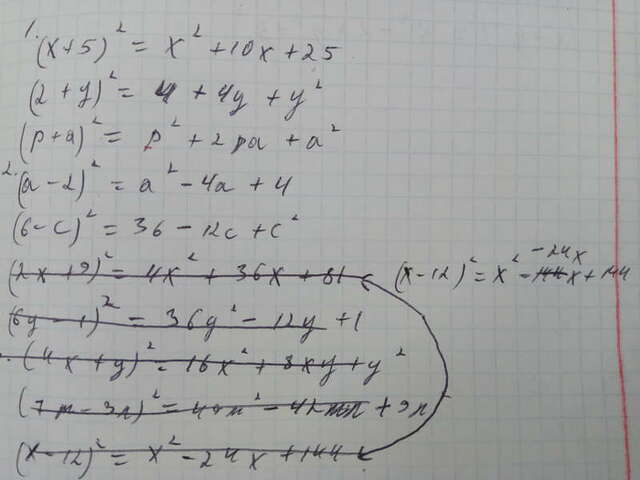 1. (x+5)² = x² + 10x + 25
(2 + y)² = 4 + 4y + y²
(p+a)² = p² + 2pa + a²
2. (a - 2)² = a² - 4a + 4
(6 - c)² = 36 - 12c + c²
(2x + 9)² = 4x² + 36x + 81
(x - 12)² = x² - 24x + 144
(6y - 1)² = 36y² - 12y + 1
(4x + y)² = 16x² + 8xy + y²
(7m - 3n)² = 49m² - 42mn + 9n
(x - 12)² = x² - 24x + 144